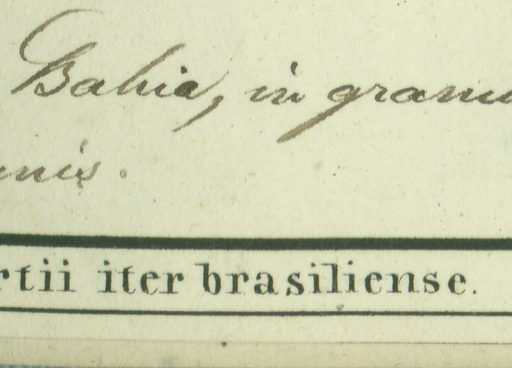 Bahia, in gram
nis.
rtii iter brasiliense.